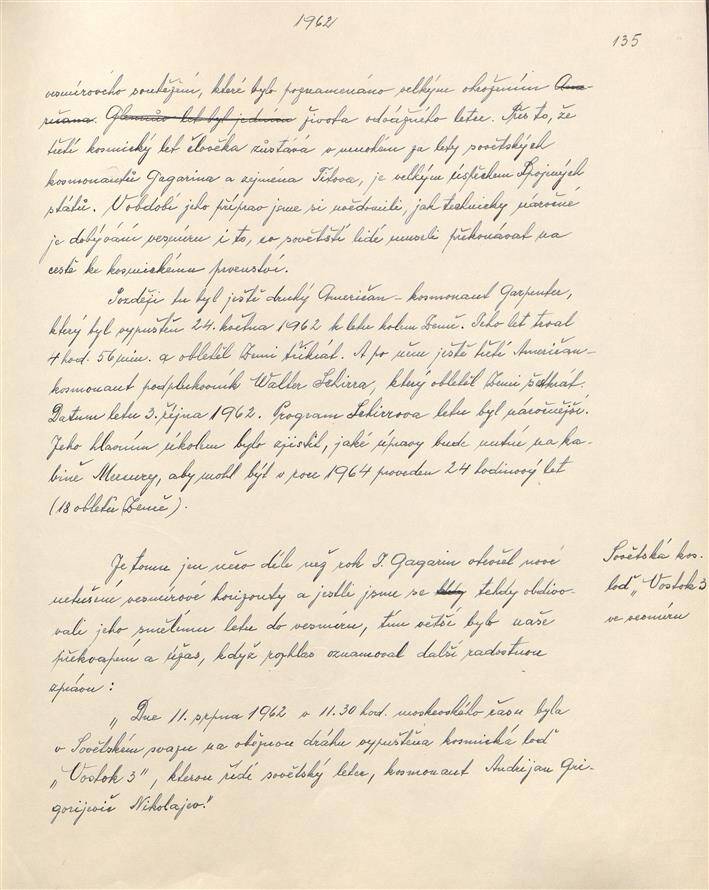 1962
135
vesmírového soutěžení, které bylo poznamenáno velkým ohrožením Ame-
ričana. Glennův let byl jedním života odvážného letce. Přes to, že
třetí kosmický let člověka zůstává v mnohém za lety sovětských
kosmonautů Gagarina a zejména Titova, je velkým úspěchem Spojených
států. V období jeho příprav jsme si uvědomili, jak technicky náročné
je dobývání vesmíru i to, co sovětští lidé museli překonávat na
cestě ke kosmickému prvenství.
Později tu byl ještě druhý Američan - kosmonaut Garpenter,
který byl vypuštěn 24. května 1962 k letu kolem Země. Jeho let trval
4 hod. 56 min. a obletěl Zemi třikrát. A po něm ještě třetí Američan-
kosmonaut podplukovník Walter Schirra, který obletěl Zemi šestkrát.
Datum letu 3. října 1962. Program Schirrova letu byl náročnější.
Jeho hlavním úkolem bylo zjistit, jaké úpravy bude nutné na ka-
bině Mercury, aby mohl být v roce 1964 proveden 24 hodinový let
(18 obletů Země).
Je tomu jen něco déle než rok J. Gagarin otevřel nové
netušené vesmírové horizonty a jestli jsme se tehdy obdivo-
vali jeho smělému letu do vesmíru, tím větší bylo naše
překvapení a úžas, když rozhlas oznamoval další radostnou
zprávu:
„Dne 11. srpna 1962 v 11.30 hod. moskevského času byla
v Sovětském svazu na oběžnou dráhu vypuštěna kosmická loď
„Vostok 3", kterou řídí sovětský letec, kosmonaut Andrijan Gri-
gorijevič Nikolajev."
Sovětská kos.
loď „Vostok 3
ve vesmíru